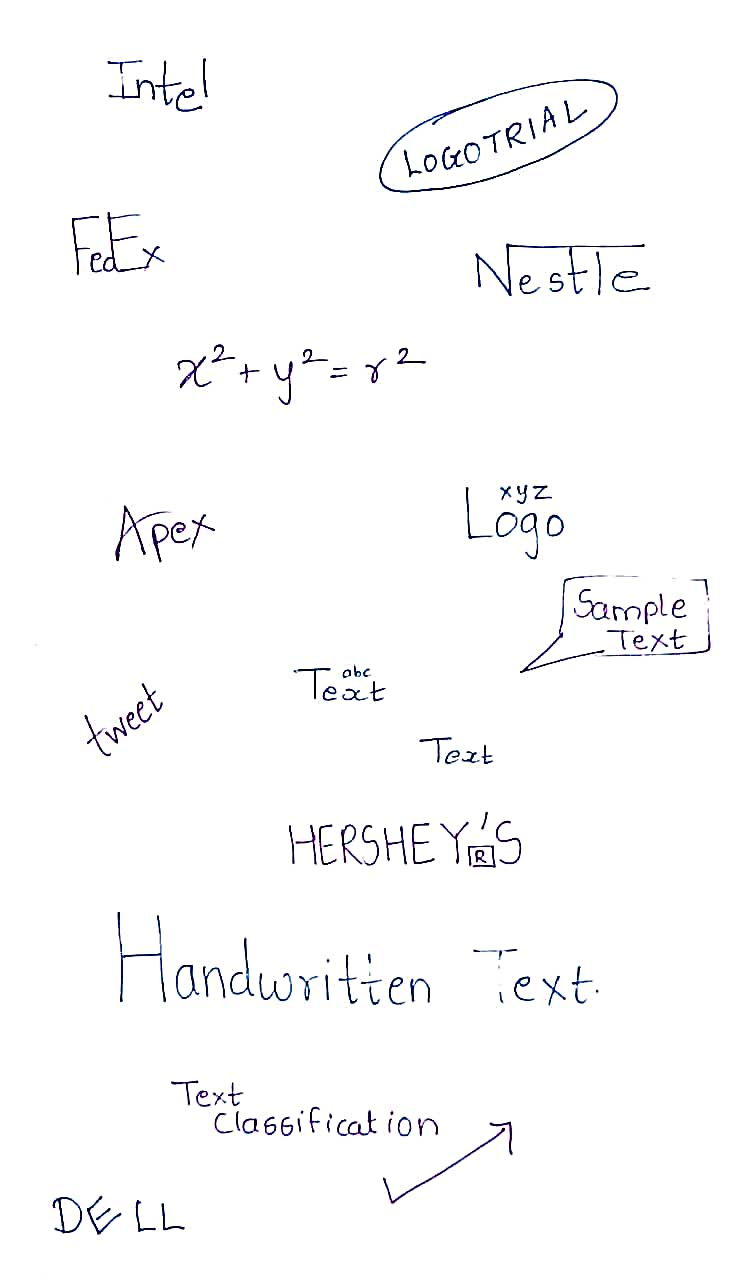 Intel
LOGOTRIAL
FedEx
Nestle
x²+y²=r²
xyz
Apex
Logo
Sample
Text
abc
Text
tweet
Text
HERSHEY'S
R
Handwritten Text.
Text
Classification
DELL